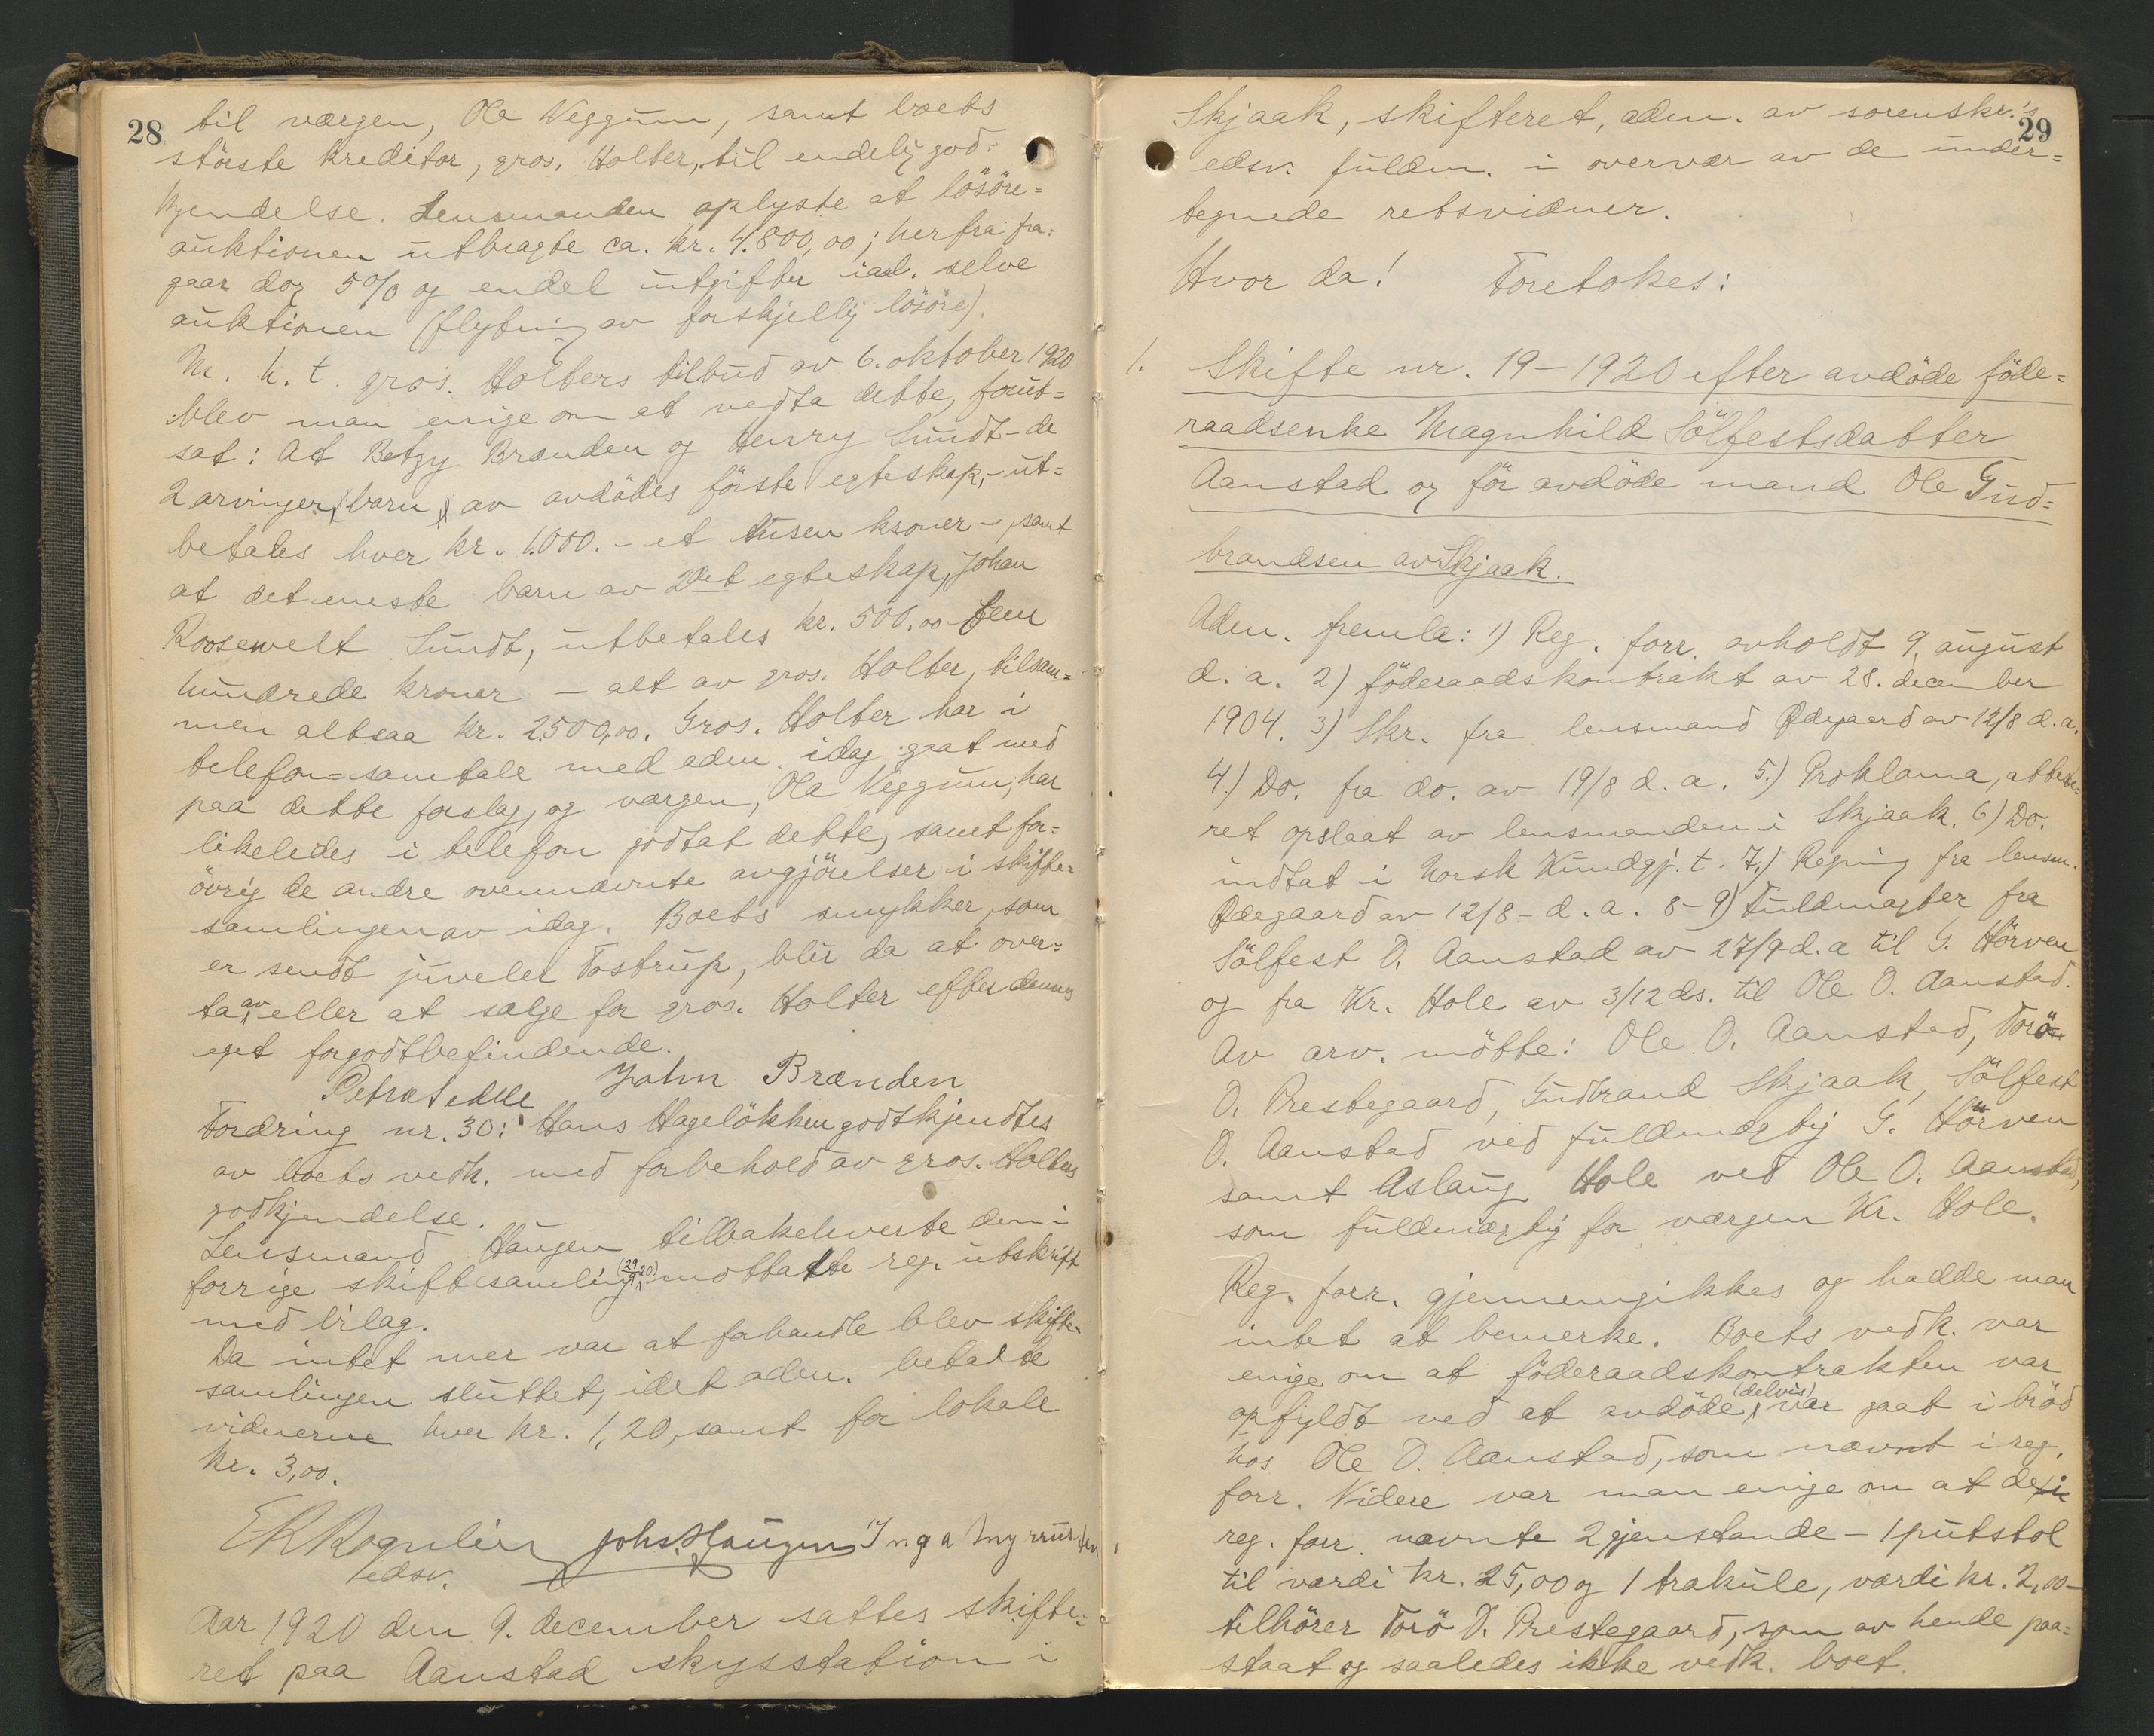 28
til værgen, Ola Veggum, samt boets
störste kreditor, gros. Holter, til endelig god-
kjendelse. Lensmanden oplyste at lösöre-
auktionen utbragte ca. kr. 4.800,00; herfra fra-
gaar dog 5% og endel utgifter ianl. selve
auktionen (flytning av forskjellig lösöre).
M. h. t. gros. Holters tilbud av 6. oktober 1920
blev man enige om et vedta dette, forut-
sat: At Betzy Brænden og Henry Sundt - de
2 arvinger, (barn) av avdödes förste egteskap, - ut-
betales hver kr. 1.000. - et tusen kroner - samt
at det eneste barn av 2det egteskap, Johan
Roosewelt Sundt, utbetales kr. 500.00 fem
hundrede kroner - alt av gros. Holter, tilsam-
men altsaa kr. 2.500,00. Gros. Holter har i
telefon-samtale med adm. idag gaat med
paa dette forslag, og værgen, Ola Veggum, har
likeledes i telefon godtat dette, samt for-
övrig de andre ovennævnte avgjörelser i skifte-
samlingen av idag. Boets smykker, som
er sendt juveler Tostrup, blir da at over-
ta av eller at sælge for gros. Holter efter dennes
eget forgodtbefindende.
John Brænden
Fordring nr. 30: Hans Hagelökken godtkjendtes
av boets vedk. med forbehold av gros. Holters
godkjendelse.
Lensmand Haugen tilbakeleverte den i
forrige skiftesamling (29/9 20) mottatte reg. utskrift
med bilag.
Da intet mer var at forhandle blev skifte-
samlingen sluttet, idet adm. betalte
vidnerne hver kr. 1,20, samt for lokale
kr. 3,00.
Johs. Haugen Inga
edsv.
Aar 1920 den 9. december sattes skifte-
ret paa Aanstad skysstation i
29
Skjaak, skifteret, adm. av sorenskr.'s
edsv. fuldm. i overvær av de under-
tegnede retsvidner.
Hvor da! Foretokes:
1. Skifte nr. 19 - 1920 efter avdöde föde-
raadsenke Magnhild Sölfestsdatter
Aanstad og för avdöde mand Ole Gud-
brandsen av Skjaak.
Adm. fremla: 1) Reg. forr. avholdt 9. august
d. a. 2) föderaadskontrakt av 28. december
1904. 3) Skr. fra lensmand Ødegaard av 12/8 d. a.
4.) Do. fra do. av 19/8 d. a. 5.) Proklama, atteste-
ret opslaat av lensmanden i Skjaak. 6) Do.
indtat i Norsk Kundgj. t. 7.) Regning fra lensm.
Ødegaard av 12/8 - d. a. 8-9) Fuldmagter fra
Sölfest O. Aanstad av 27/9 d. a til G. Hörven
og fra Kr. Hole av 3/12 ds. til Ole O. Aanstad.
Av arv. mötte: Ole O. Aanstad, Torö
O. Prestegaard, Gudbrand Skjaak, Sölfest
O. Aanstad ved fuldmægtig G. Hörven
samt Aslaug Hole ved Ole O. Aanstad,
som fuldmægtig for værgen Kr. Hole.
Reg. forr. gjennemgikkes og hadde man
intet at bemerke. Boets vedk. var
enige om at föderaadskontrakten var
opfyldt ved at avdöde (delvis) var gaat i bröd
hos Ole O. Aanstad, som nævnt i reg.
forr. Videre var man enige om at de i
reg. forr. nævnte 2 gjenstande - 1 putstol
til værdi kr. 25,00 og 1 trakule, værdi kr. 2,00 -
tilhörer Torö O. Prestegaard, som av hende paa-
staat og saaledes ikke vedk. boet.